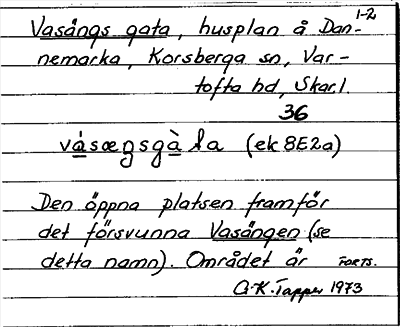 Vasängs gata, husplan å Dan- 1-2
nemarka, Korsberga sn, Var-
tofta hd, Skar.l.
36
vásæŋsgàta (ek 8E2a)
Den öppna platsen framför
det försvunna Vasängen (se
detta namn). Området är FORTS.
A-K. Tapper 1973